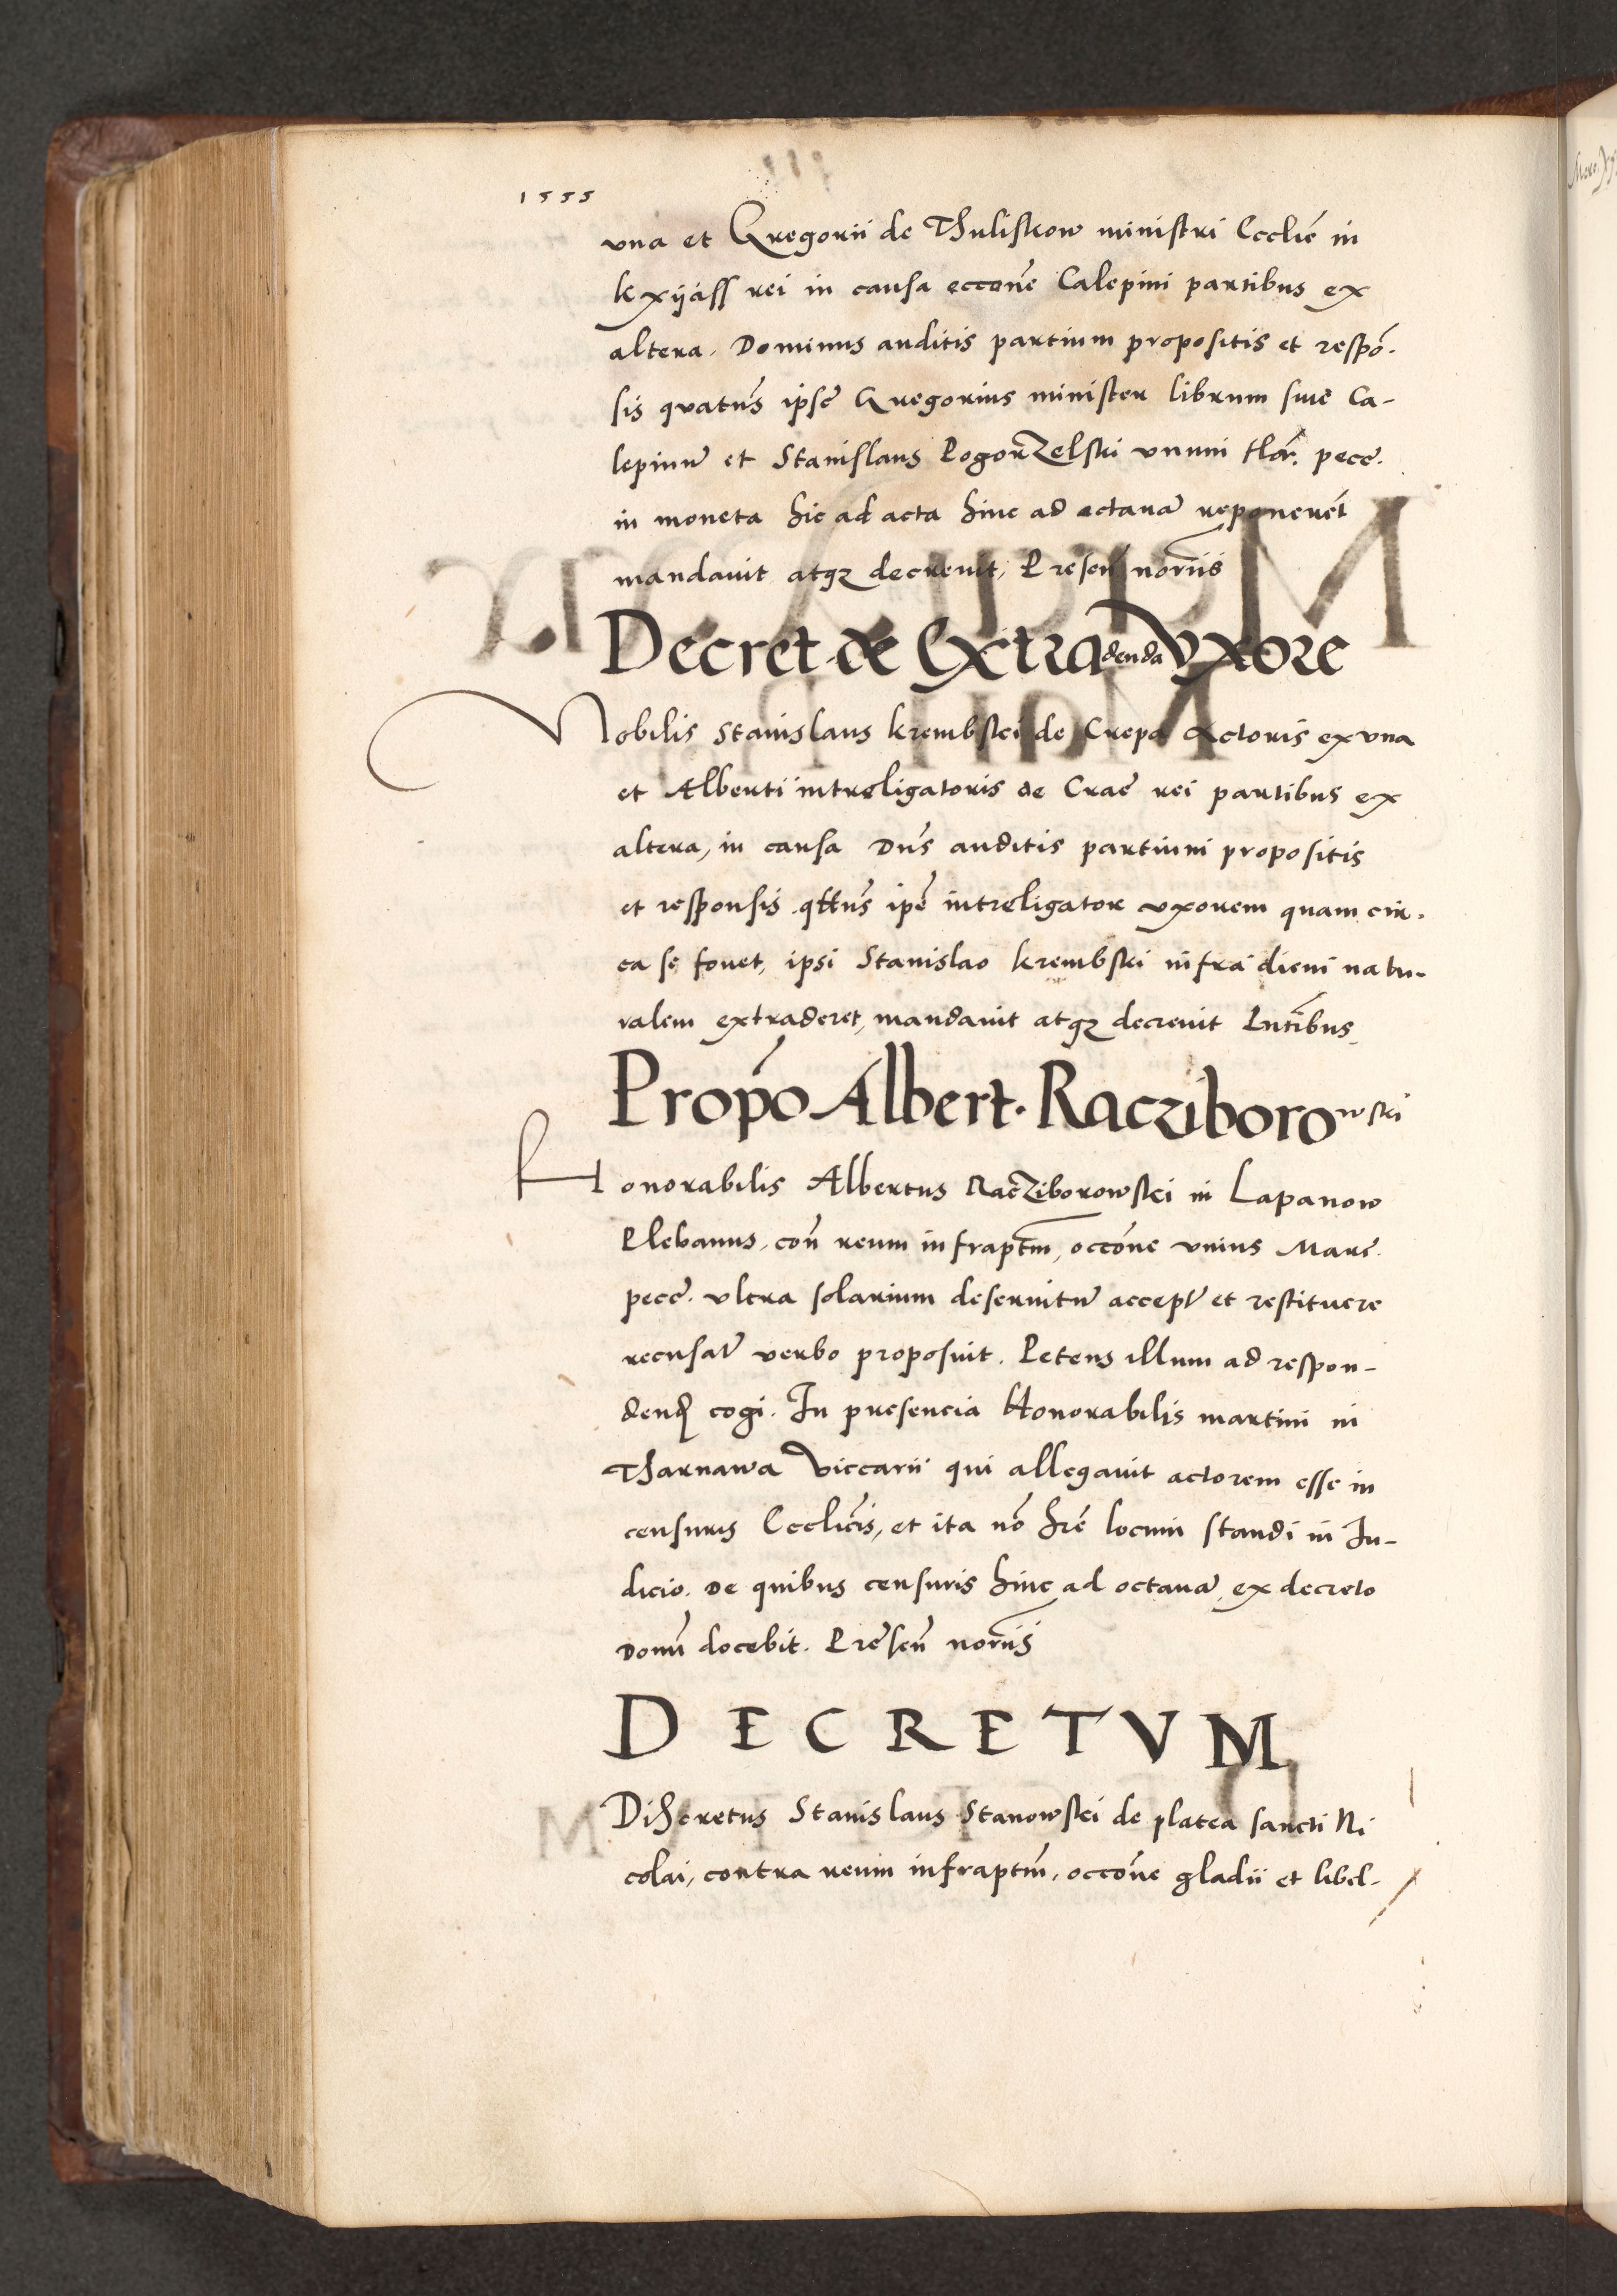 1555
vna et Gregorii de Thuliskow ministri Ecclie͂ in
kxyąss rei in causa occone͂ Calepini partibus ex
altera. Dominus auditis partium propositis et respo͂.
sis quatn͂s ipse Gregorius minister librum sive Ca-
lepinu͂ et Stanislaus Pogorzelski vnum flor. pecc.
in moneta hic ad acta hinc ad octaua͂ reponerēt
mandauit atqꝫ decreuit, Presen͂ noriis
Decret. de Extradenda Vxore
Nobilis Stanislaus krembski de Crepa Actoris ex vna
et Alberti intreligatoris de Crac͂ rei partibus ex
altera, in causa Dn͂s auditis partium propositis
et responsis qttn͂s ipe͂ intreligator vxorem quam cir.
ca se fouet, ipsi Stanislao krembski infra diem natu-
ralem extraderet, mandauit atqꝫ decreuit Pn͂tibus
Propo͂ Albert. Racziborowski
Honorabilis Albertus Racziborowski in Lapanow
Plebanus, con͂ reum infraptm͂, occon͂e vnius Marc.
pecc. vltra solarium deseruitu͂ accept͂ et restituere
recusat͂ verbo proposuit. Petens illum ad respon-
dend͂ cogi. In presencia Honorabilis martini in
Tharnawa Viccarii qui allegauit actorem esse in
censuris Ecclicīs, et ita no͂ hre͂ locum standi in Iu-
dicio. De quibus censuris hinc ad octaua͂ ex decreto
Domī docebit. Presen͂ noriis
DECRETVM
Discretus Stanislaus Stanowski de platea sancti Ni
colai, contra reum infraptm͂, occon͂e gladii et libel-